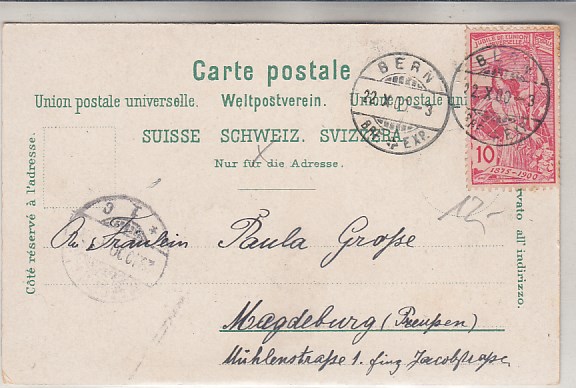 Carte postale
Union postale universelle. Weltpostverein. Unione postale uni
SUISSE SCHWEIZ. SVIZZERA.
Nur für die Adresse.
Côté réservé à l'adresse.
rvato all' indirizzo.
BERN
22.X.00.-3
BRF. EXP.
22.X.00-3
EXP.
JUBILÉ DE L'UNION
10
1875-1900
12/-
Fräulein Paula Große
Magdeburg (Preußen)
Mühlenstraße 1. Jacobstraße